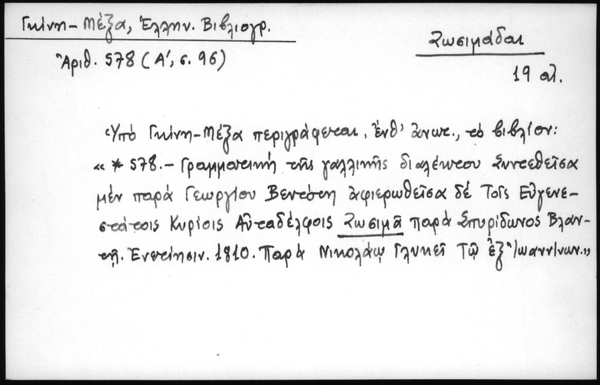 Γκίνη-Μέξα, Ἑλλην. Βιβλιογρ.
Ἀριθ. 578 (Α', σ. 96)
Ζωσιμάδαι
19 αἰ.
Ὑπὸ Γκίνη-Μέξα περιγράφεται, ἔνθ' ἀνωτ., τὸ βιβλίον:
«*578.- Γραμματικὴ τῆς γαλλικῆς διαλέκτου Συντεθεῖσα
μὲν παρὰ Γεωργίου Βεντότη ἀφιερωθεῖσα δὲ Τοῖς Εὐγενε-
στάτοις Κυρίοις Αὐταδέλφοις Ζωσιμᾶ παρὰ Σπυρίδωνος Βλαν-
τῆ. Ἐνετίησιν. 1810. Παρὰ Νικολάῳ Γλυκεῖ Τῷ ἐξ Ἰωαννίνων.»